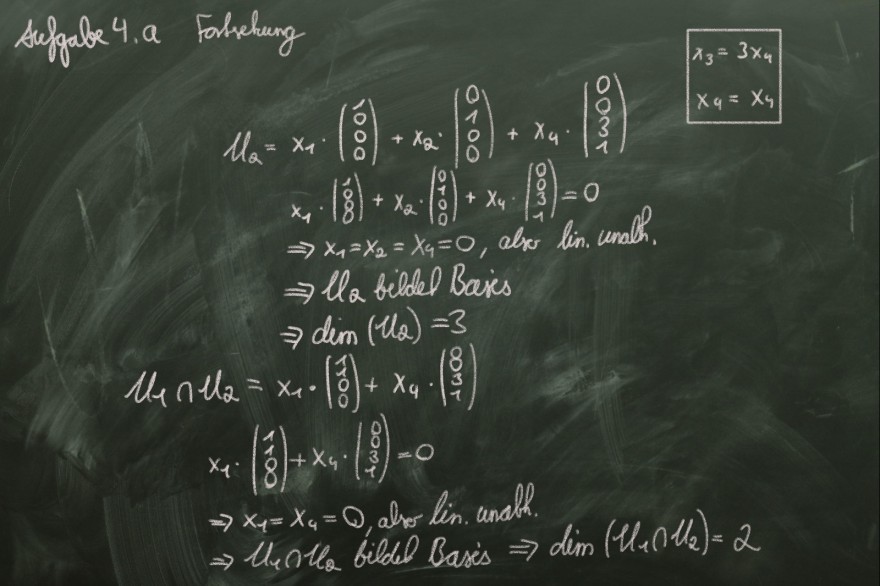 Aufgabe 4.a Fortsetzung
x₃ = 3x₄
x₄ = x₄
U₂ = x₁ · (1 0 0 0) + x₂ · (0 1 0 0) + x₄ · (0 0 3 1)
x₁ · (1 0 0 0) + x₂ · (0 1 0 0) + x₄ · (0 0 3 1) = 0
⇒ x₁ = x₂ = x₄ = 0, also lin. unabh.
⇒ U₂ bildet Basis
⇒ dim (U₂) = 3
U₁ ∩ U₂ = x₁ · (1 1 0 0) + x₄ · (0 0 3 1)
x₁ · (1 1 0 0) + x₄ · (0 0 3 1) = 0
⇒ x₁ = x₄ = 0, also lin. unabh.
⇒ U₁ ∩ U₂ bildet Basis ⇒ dim (U₁ ∩ U₂) = 2